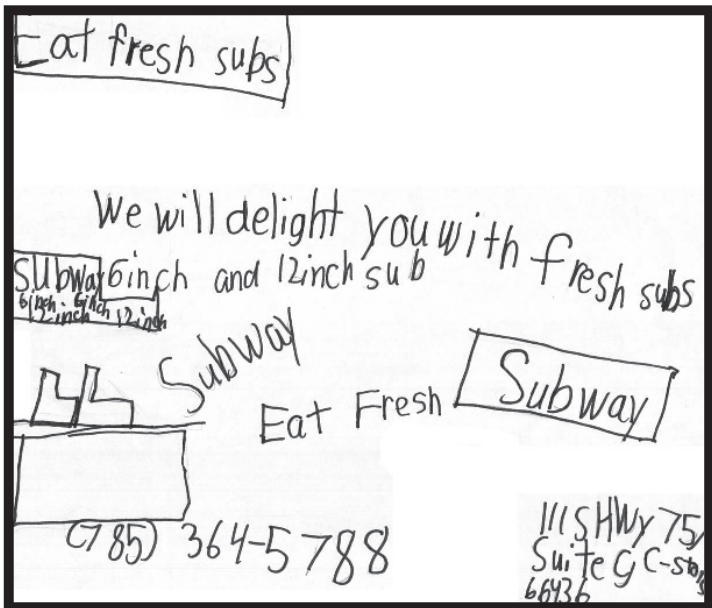 Eat fresh subs
We will delight you with fresh subs
Subway 6inch and 12inch sub
6inch 6inch
12inch 12inch
Subway
Eat Fresh Subway
(785) 364-5788
111 S HWy 75
Suite G C-store
66436